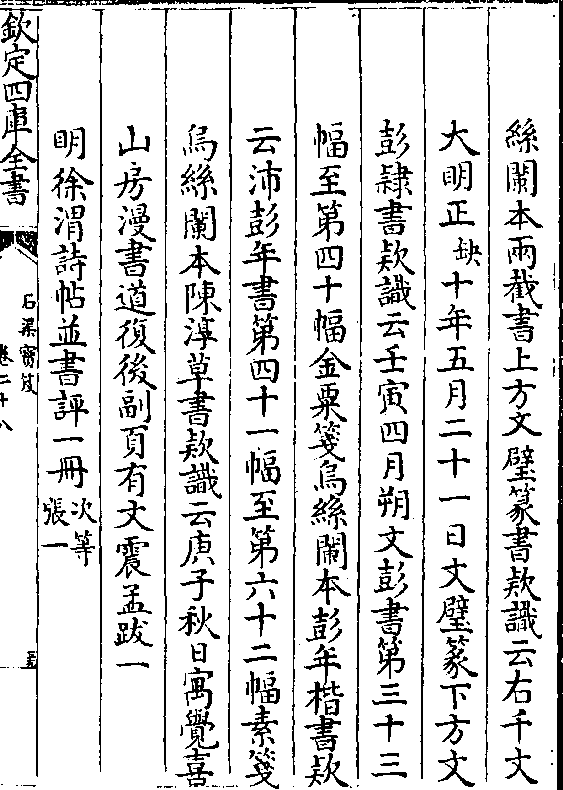 絲闌本兩截書上方文璧篆書欵識云右千文
大明正缺十年五月二十一日文璧篆下方文
彭隷書欵識云壬寅四月朔文彭書第三十三
幅至第四十幅金粟箋烏絲闌本彭年楷書欵
云沛彭年書第四十一幅至第六十二幅素箋
烏絲闌本陳淳草書欵識云庚子秋日寓覺喜
山房漫書道復後副頁有文震孟跋一
明徐渭詩帖並書評一冊次等張一
欽定四庫全書
石渠寳笈
卷二十八